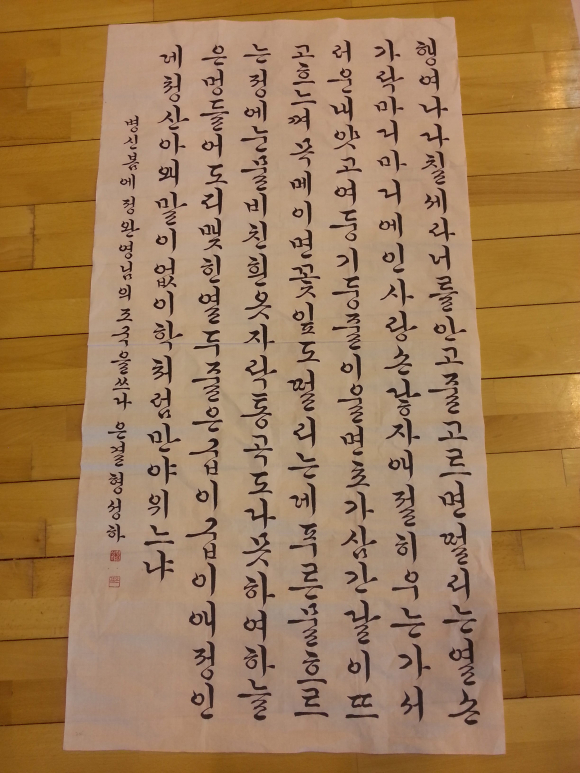 행여나다칠세라너를안고줄고르면떨리는열손
가락마디마디에인사랑손닿자애절히우는가서
러운내얏고여둥기둥줄이울면초가삼간달이뜨
고흐느껴목메이면꽃잎도떨리는데푸른물흐르
는정에눈물비친흰옷자락통곡도다못하여하늘
은멍들어도피맺힌열두줄은굽이굽이애정인
데청산아왜말이없이학처럼만야위느냐
병신봄에정완영님의조국을쓰다 은결형성하